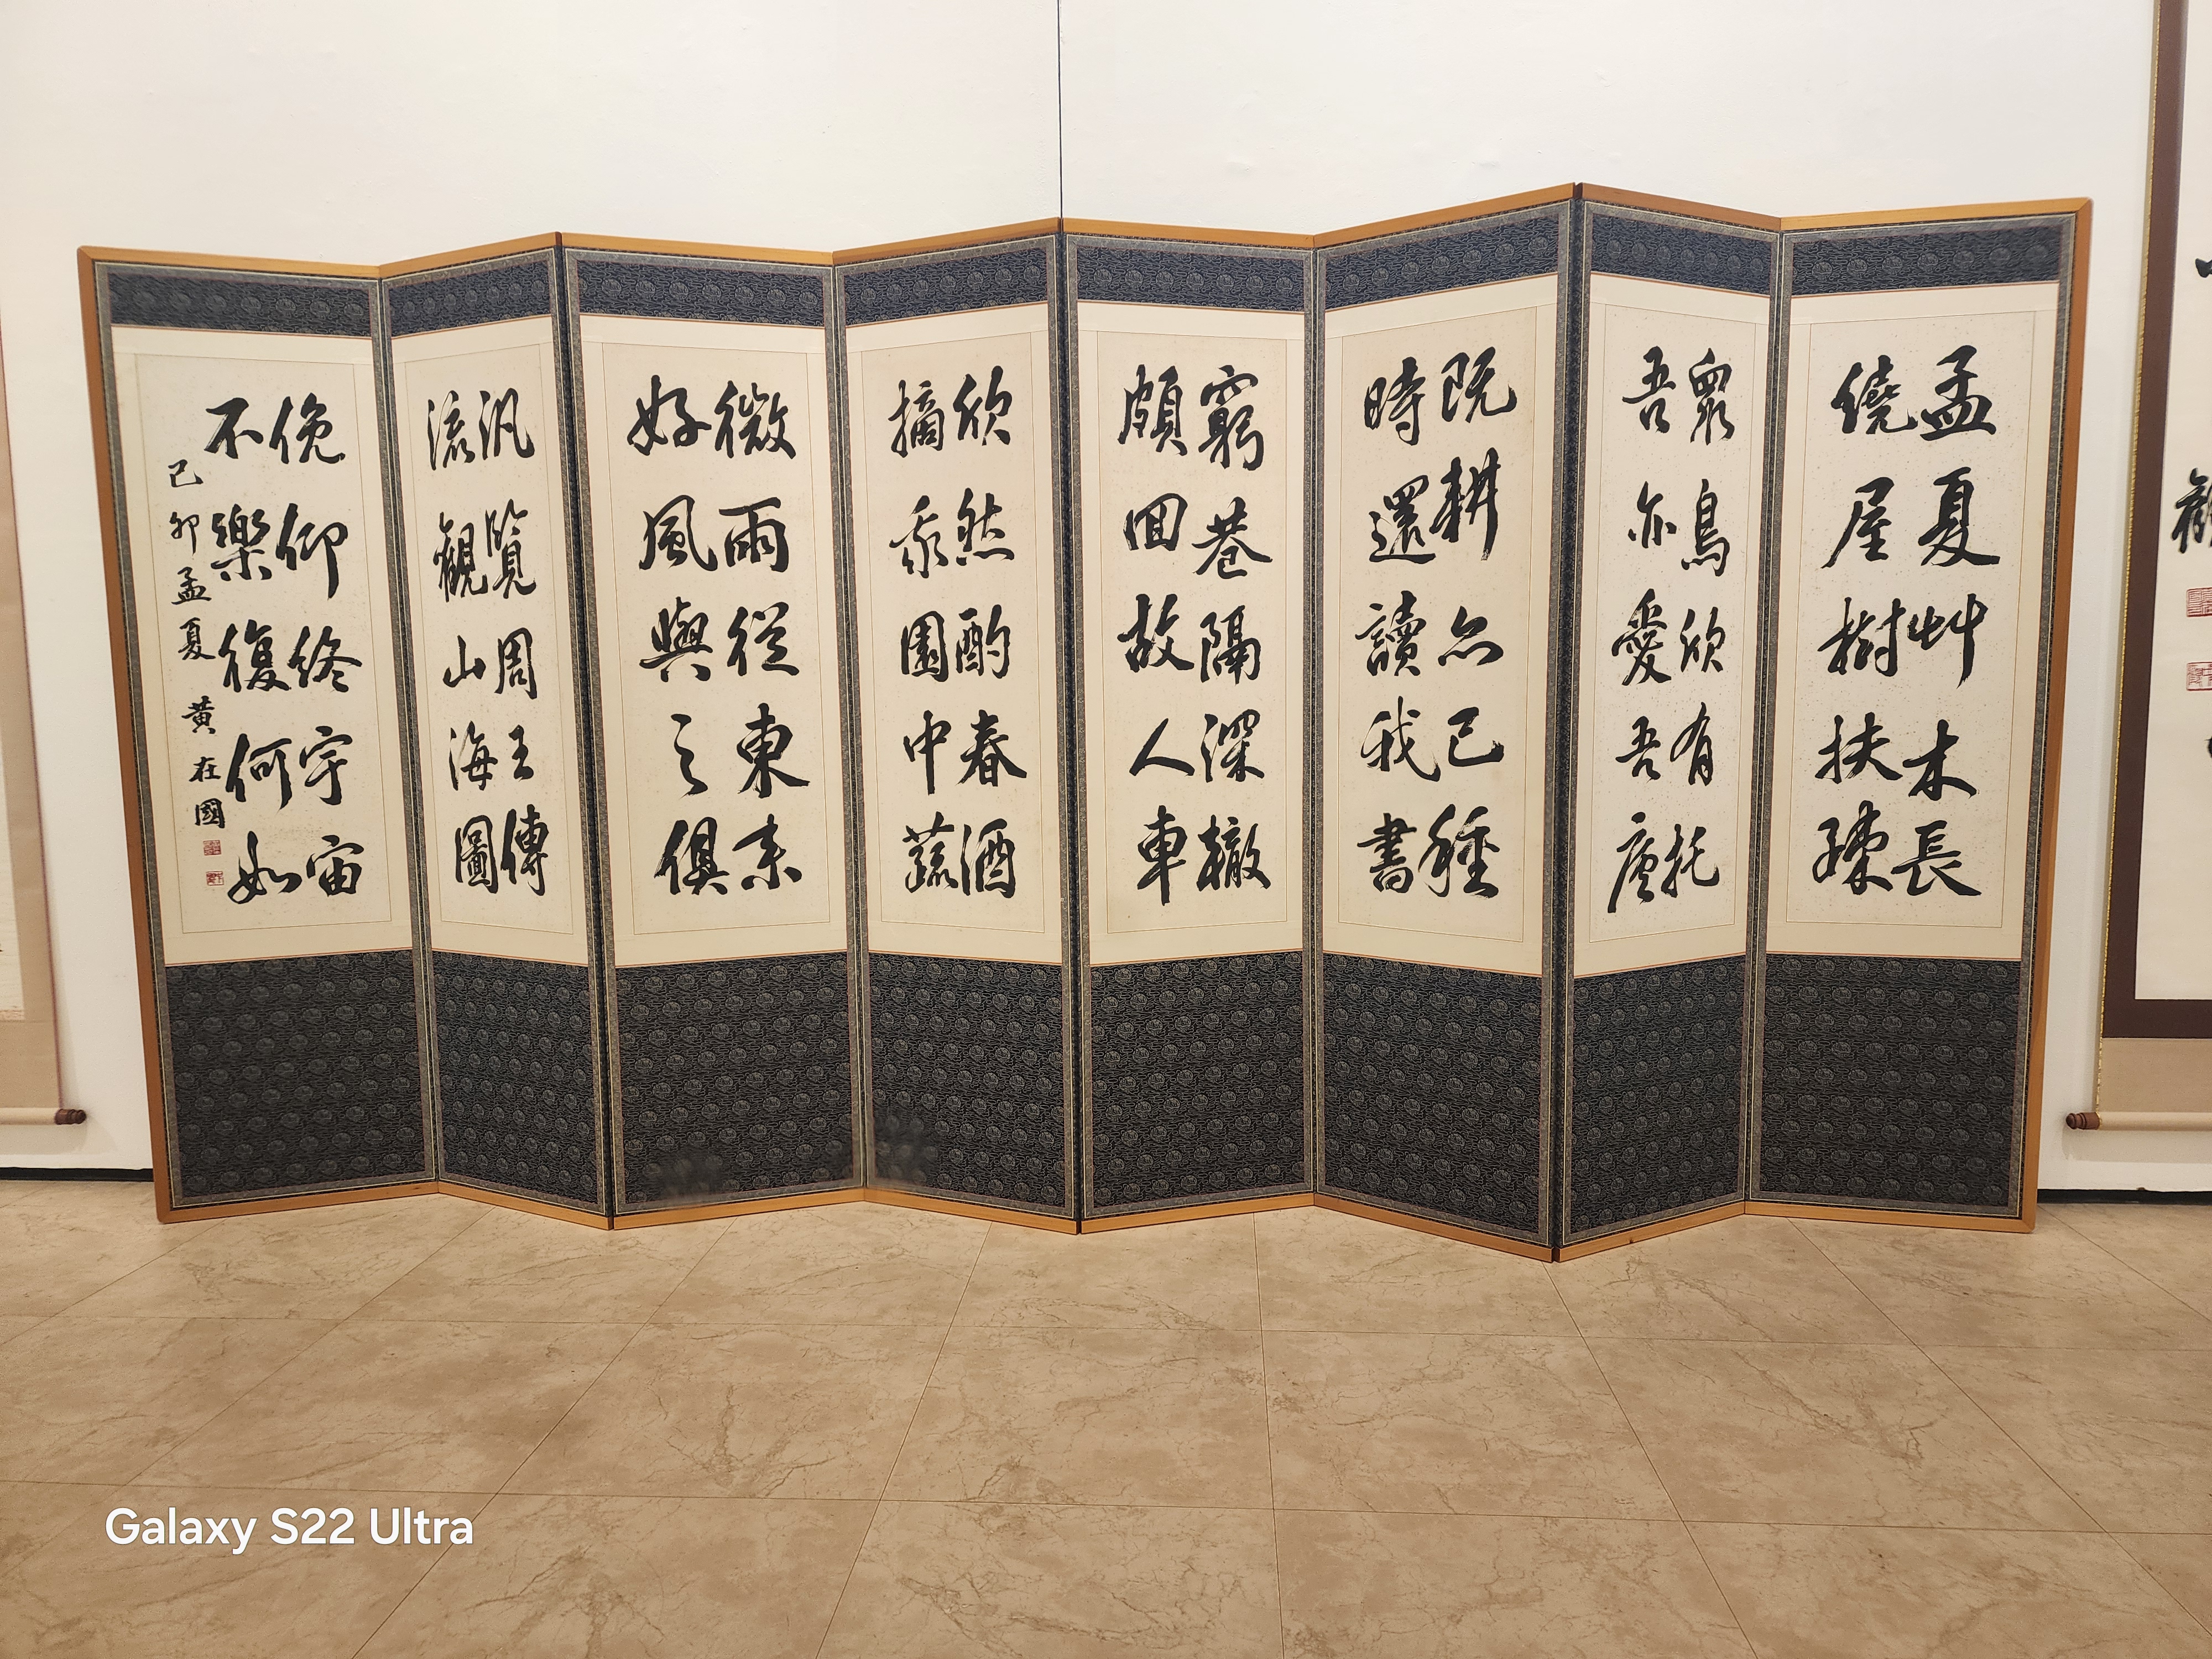 孟夏艸木長
繞屋樹扶疎
衆鳥欣有托
吾亦愛吾廬
既耕亦已種
時還讀我書
窮巷隔深轍
頗回故人車
欣然酌春酒
摘我園中蔬
微雨從東来
好風與之俱
汎覧周王傳
流觀山海圖
俛仰終宇宙
不樂復何如
己卯孟夏 黃在國
Galaxy S22 Ultra